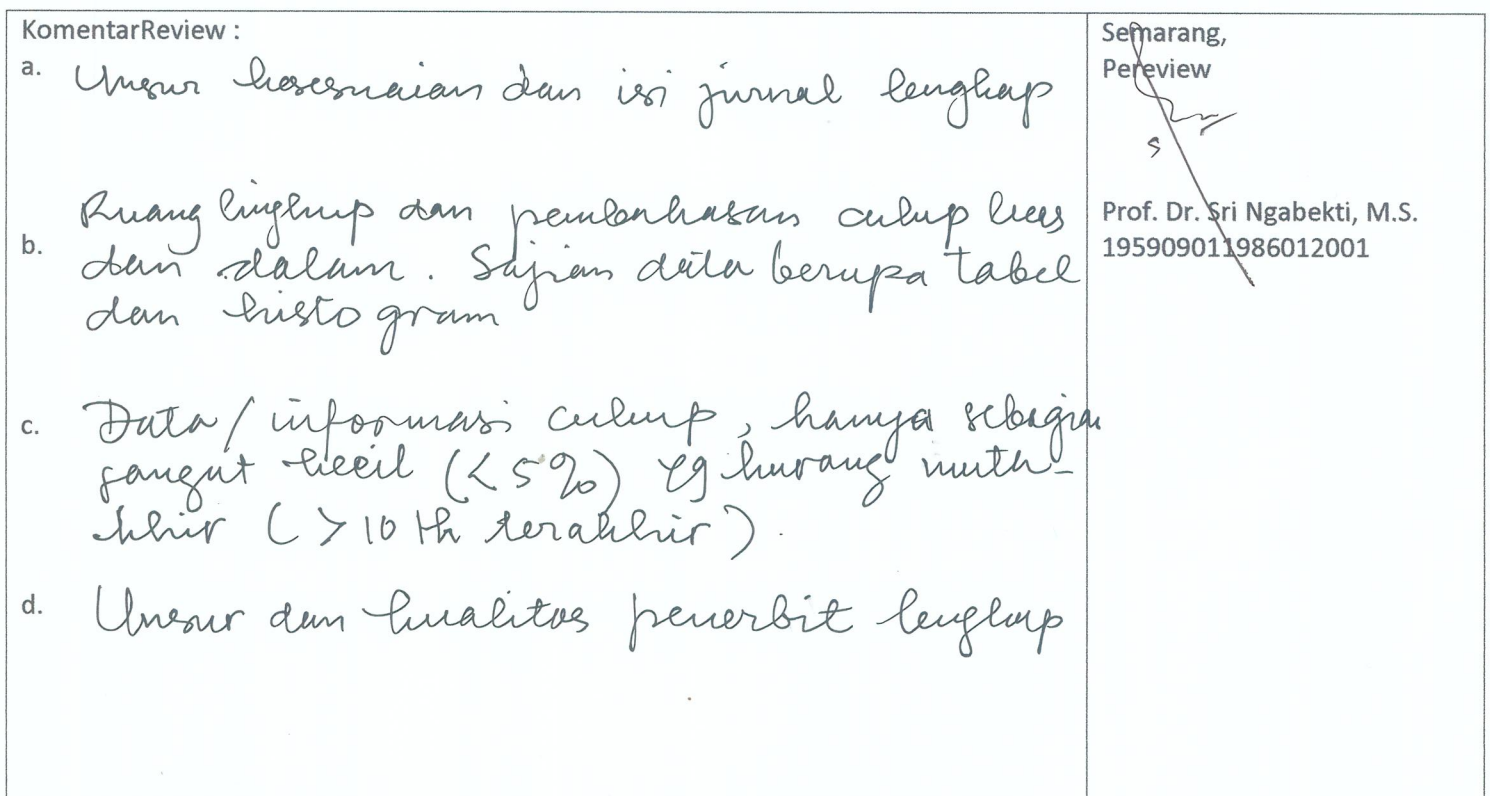 KomentarReview :
a. Unsur kesesuaian dan isi jurnal lengkap
Ruang lingkup dan pembahasan cukup luas
b. dan dalam. Sajian data berupa tabel
dan histogram
c. Data/informasi cukup, hanya sebagian
sangat kecil (<5%) yg kurang muta-
khir (>10 th terakhir).
d. Unsur dan kualitas penerbit lengkap
Semarang,
Pereview
Prof. Dr. Sri Ngabekti, M.S.
195909011986012001